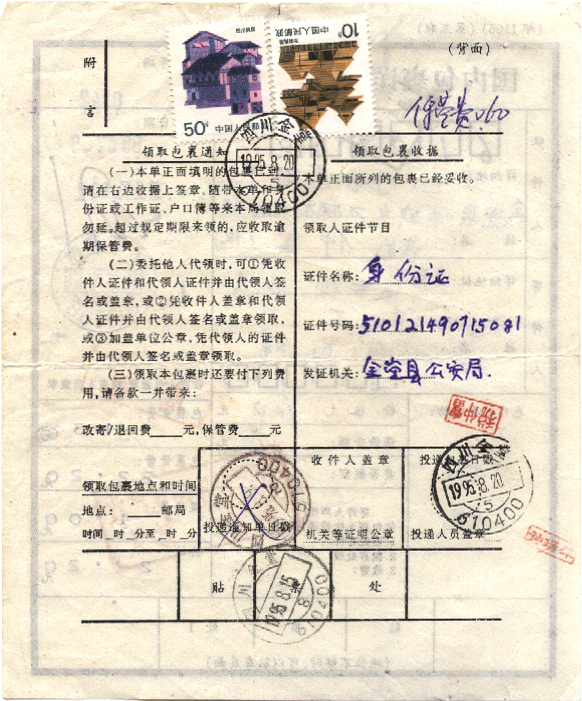 (背面)
附
言
50分
中国人民邮政
10分
中国人民邮政
保管费0.60
四川金堂
1995.8.20
610400
领取包裹通知
(一)本单正面填明的包裹已到,
请在右边收据上签章,随带本单和身
份证或工作证、户口簿等来本局领取
勿延。超过规定期限来领的,应收取逾
期保管费。
(二)委托他人代领时,可①凭收
件人证件和代领人证件并由代领人签
名或盖章,或②凭收件人盖章和代领
人证件并由代领人签名或盖章领取,
或③加盖单位公章,凭代领人的证件
并由代领人签名或盖章领取。
(三)领取本包裹时还要付下列费
用,请各款一并带来:
改寄/退回费____元,保管费____元
领取包裹收据
本单正面所列的包裹已经妥收。
领取人证件节目
证件名称:身份证
证件号码:510121490715081
发证机关:金堂县公安局.
领取包裹地点和时间
地点:____邮局
时间__时__分至__时__分
投递通知单日戳
收件人盖章
机关等证明公章
投递日戳
投递人员盖章
四川金堂
1995.8.20
610400
610400
贴
票
处
1995.8.15
610400